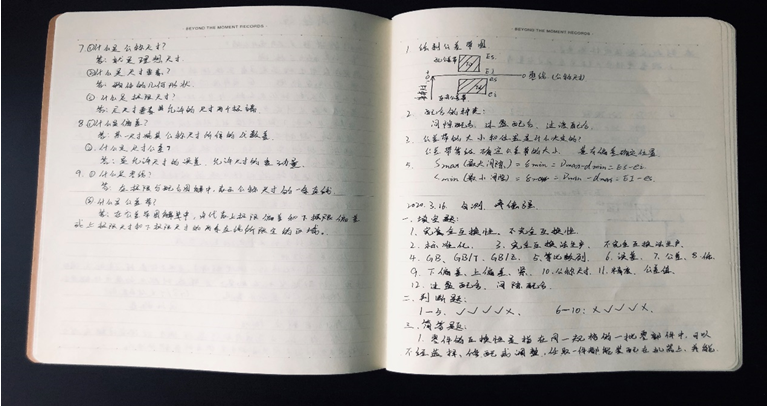 BEYOND THE MOMENT RECORDS
7.①什么是公称尺寸?
答:就是理想尺寸.
②什么是尺寸要素?
答:
③什么是极限尺寸?
答:尺寸要素允许的尺寸两个极端.
8.①什么是偏差?
答:某一尺寸减其公称尺寸所得的代数差
②什么是尺寸公差?
答:是允许尺寸的误差,允许尺寸的变动量.
9.①什么是零线?
答:在极限与配合图解中,表示公称尺寸的一条直线
②什么是公差带?
答:在公差带图解中,由代表上极限偏差和下极限偏差
或上极限尺寸和下极限尺寸的两条直线所限定的区域.
BEYOND THE MOMENT RECORDS
1. 绘制公差带图
ES
EI
0 零线 (公称尺寸)
es
ei
2. 配合的种类:
间隙配合、过盈配合、过渡配合.
3. 公差带的大小和位置是什么决定的?
公差等级确定公差带的大小, 基本偏差确定位置.
5. Smax(最大间隙)= Dmax-dmin=ES-ei
min(最小间隙)= Dmin-dmax=EI-es.
2020.3.16.
一.填空题:
1.完全互换性、不完全互换性.
2.标准化. 3.完全互换法生产、不完全互换法生产.
4.GB、GB/T、GB/Z. 5.等比数列 6.误差. 7.公差. 8.
9.下偏差、上偏差、 10.公称尺寸. 11.精度、公差值.
12.过盈配合、间隙配合.
二.判断题:
1—5: ✓✓✓✓×. 6—10: ×✓✓✓×.
三.简答题:
1.零件的互换性是指在同一规格的一批零部件中,可以
不经选择、修配或调整,任取一件都能装配在机器上,并能